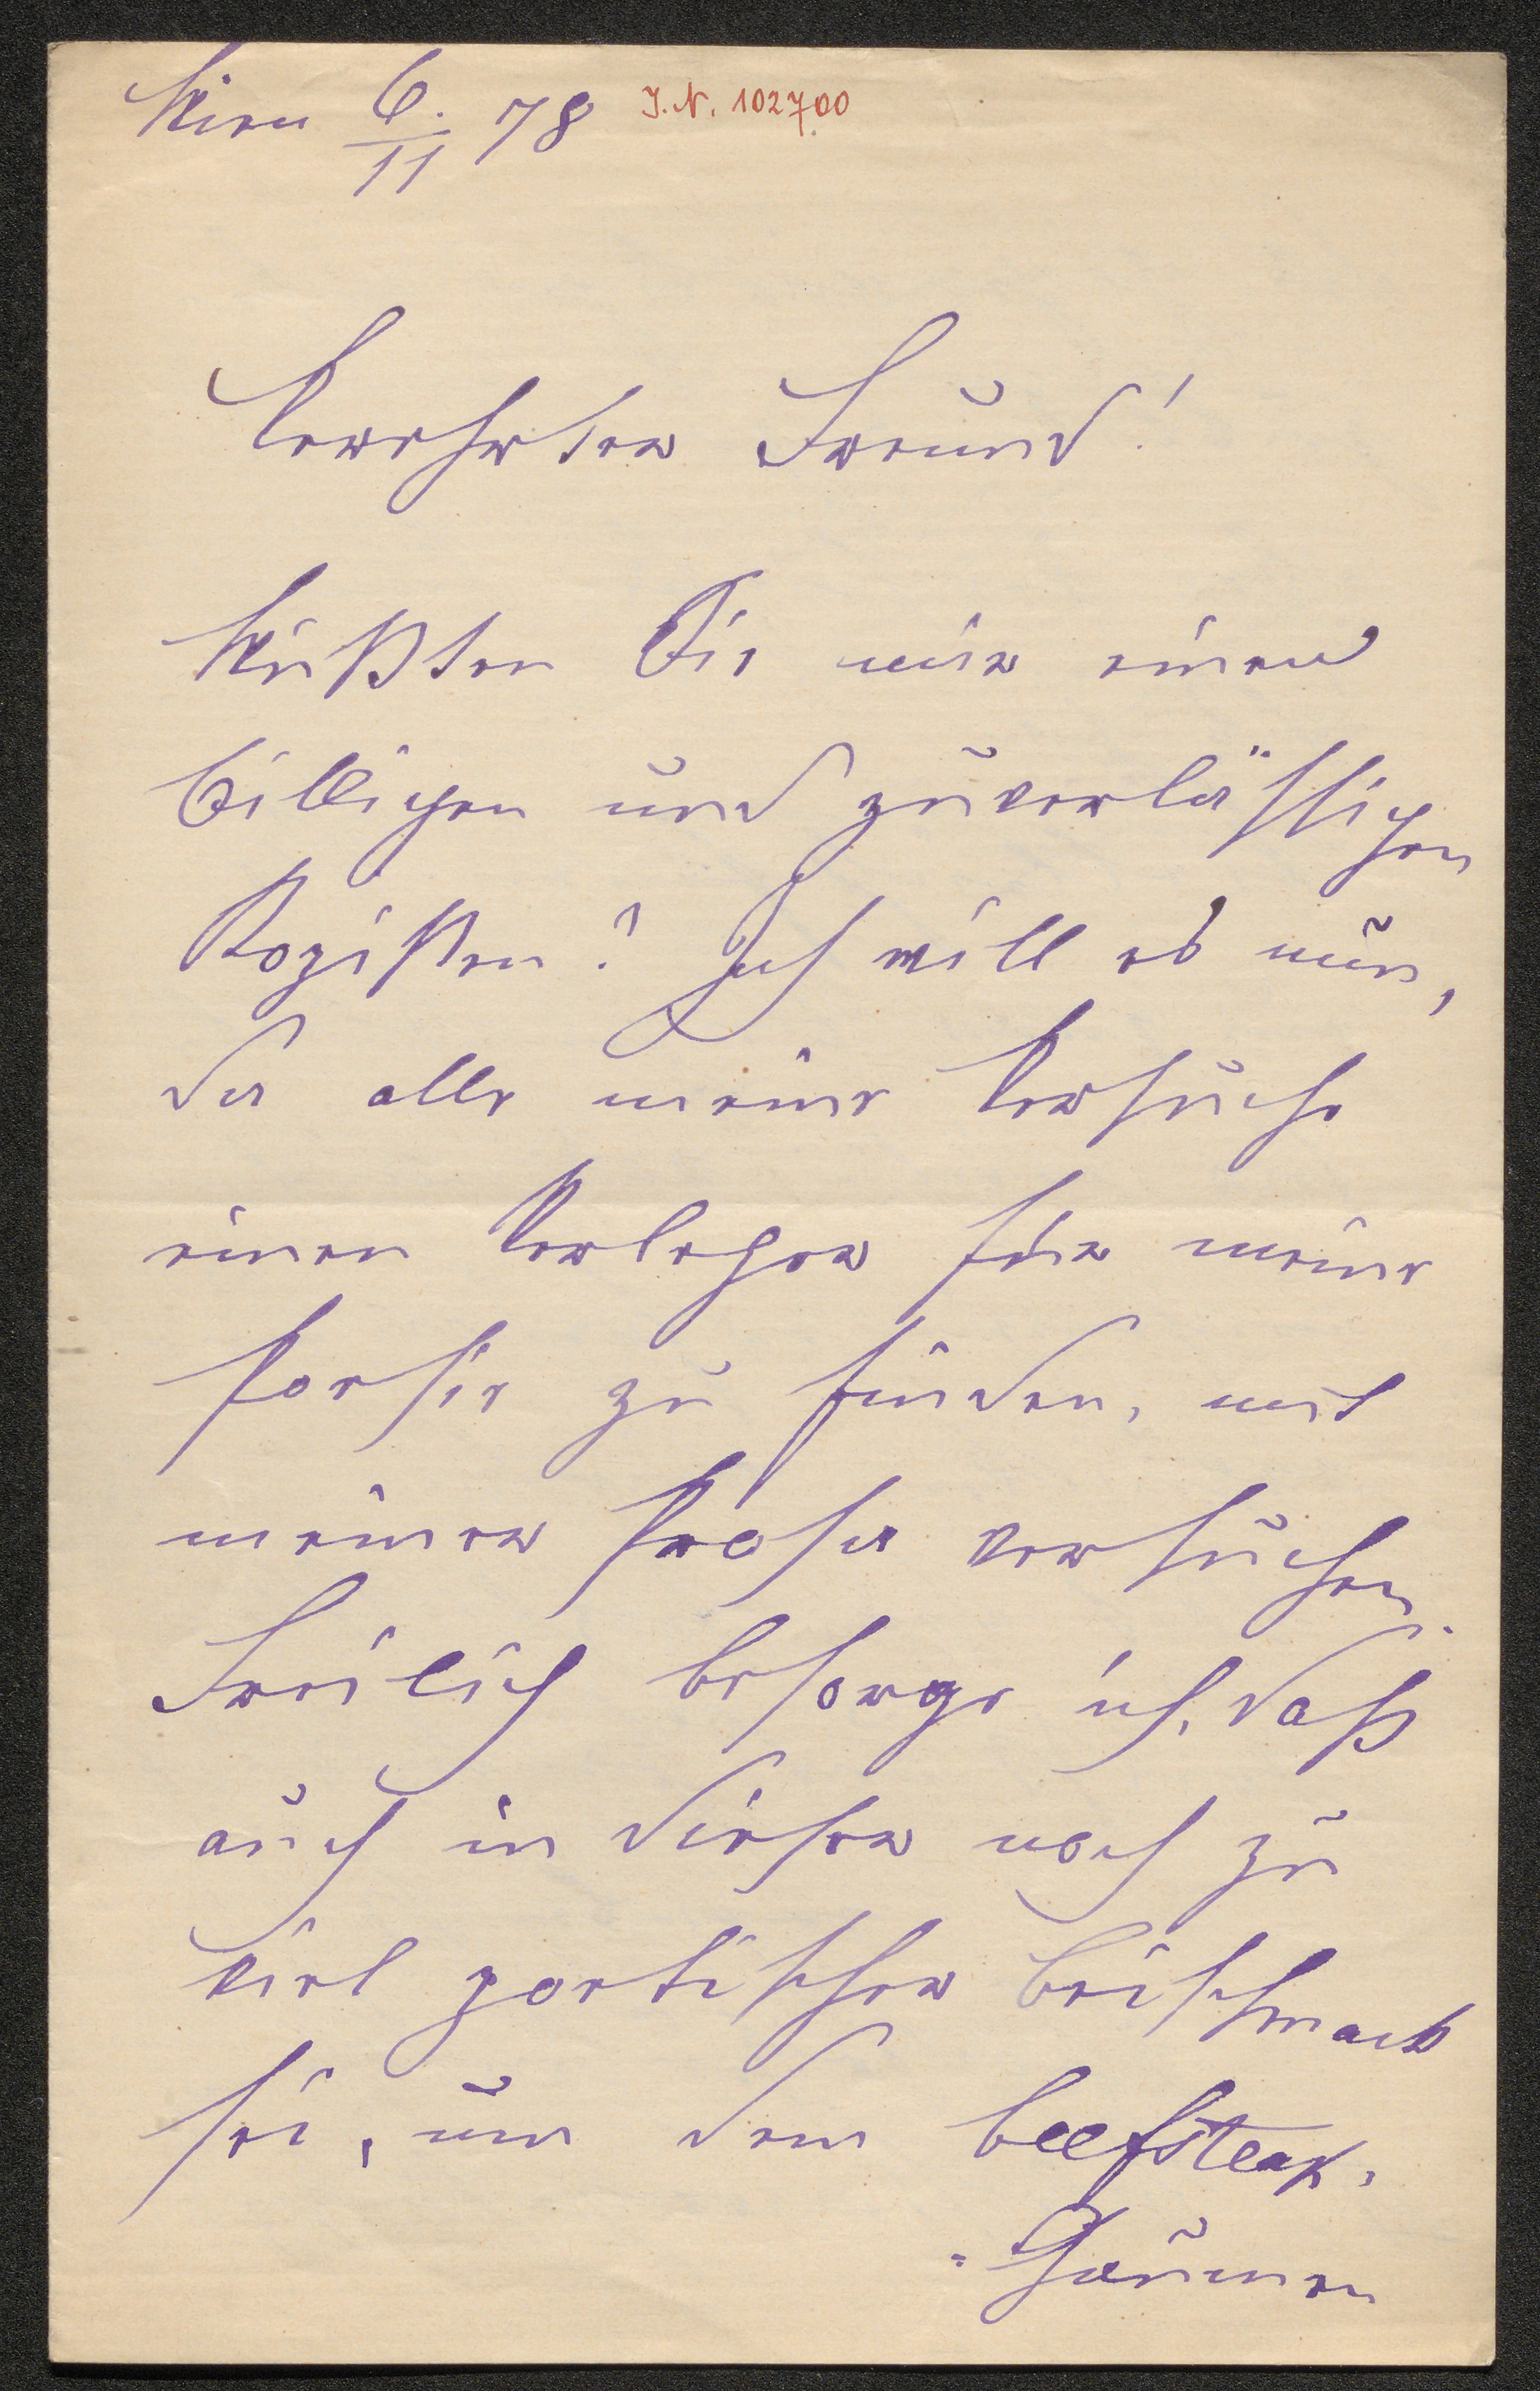 Wien 6./11 78 J.N. 102700
Verehrter Freund!
Wüßten Sie mir einen
billigen und zuverlässigen
Kopisten? Ich will es nun,
da alle meine Versuche
einen Verleger für meine
Poesie zu finden, mit
meiner Prosa versuchen.
Freilich besorge ich, daß
auch in dieser noch zu
viel poetischer Beischmack
sei, um den beefsteak-
-Gaumen